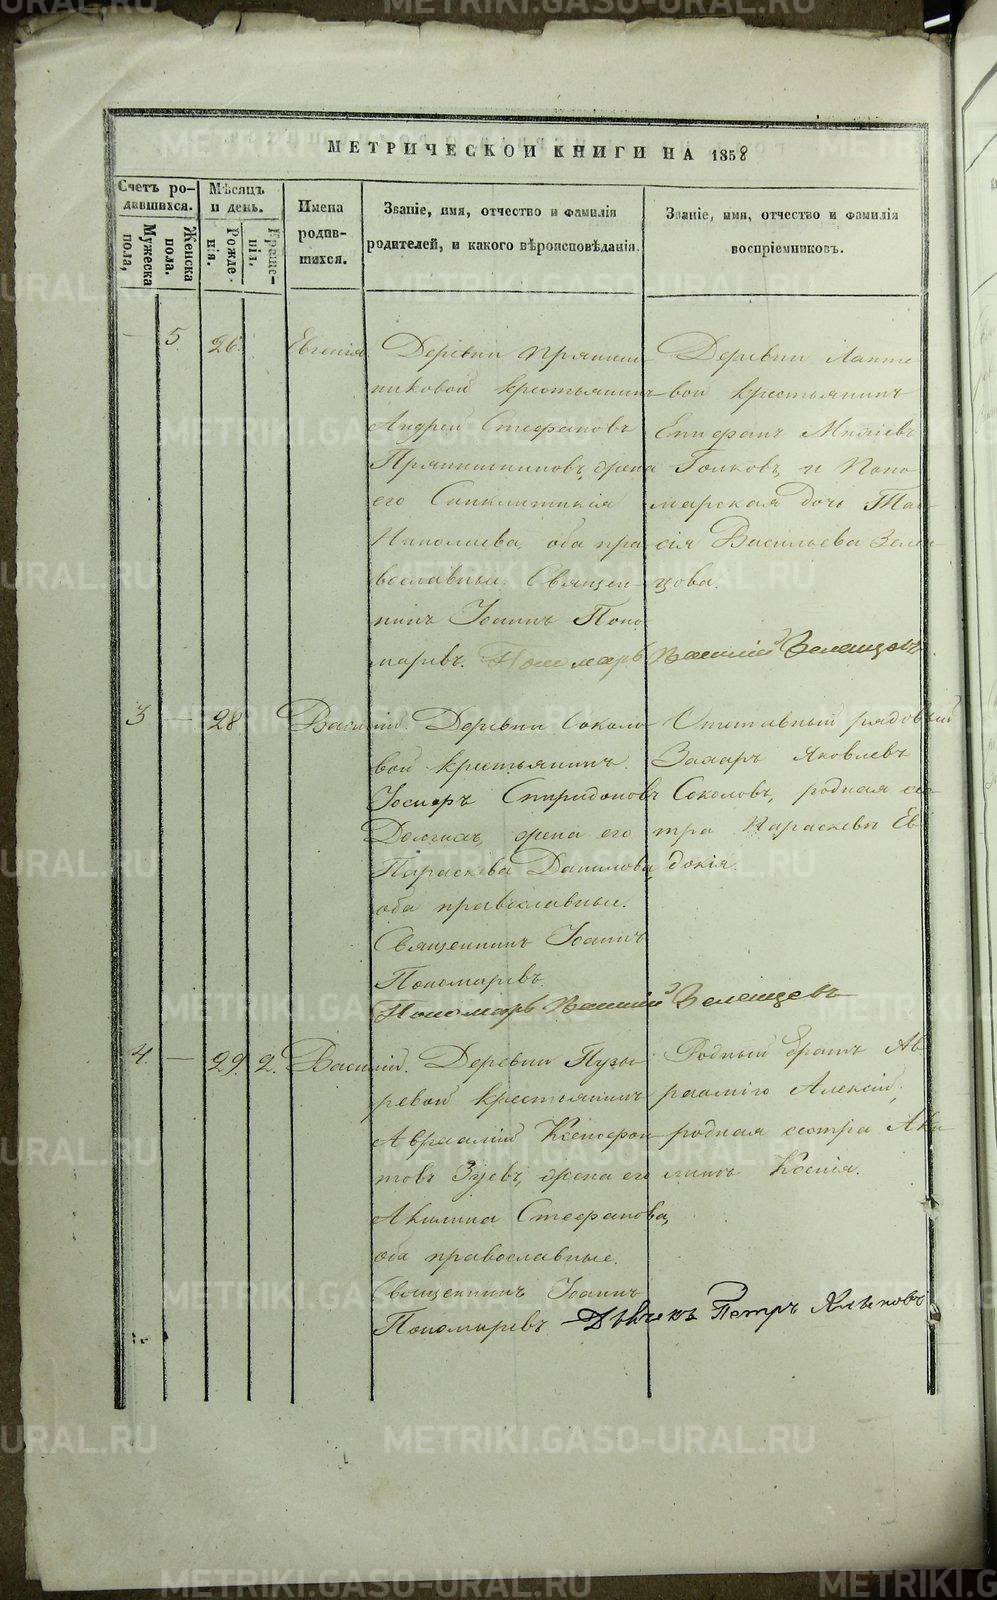 МЕТРИЧЕСКОЙ КНИГИ НА 1858
Счетъ ро-
дившихся.
Мужеска
пола,
Женска
пола.
Мѣсяцъ
и день.
Рожде-
нія.
Креще-
нія.
Имена
родив-
шихся.
Званіе, имя, отчество и фамилія
родителей, и какого вѣроисповѣданія.
Званіе, имя, отчество и фамилія
воспріемниковъ.
— 5. 26. Евгенія
Деревни Пряниш-
никовой крестьянинъ
Андрей Стефановъ
Прянишниковъ, жена
его Синклитикія
Николаева, оба пра-
вославные. Священ-
никъ Іоаннъ Поно-
маревъ. Пономарь Василій Зеленцовъ
Деревни Лапте-
вой крестьянинъ
Епифанъ
и Поно-
марская дочь Таи-
сія Васильева Зелен-
цова.
3 — 28 Василій.
Деревни Соколо-
вой крестьянинъ
Іосифъ Спиридоновъ
Долгихъ, жена его
Параскева Данилова,
оба православные.
Священникъ Іоаннъ
Пономаревъ.
Пономарь Василій Зеленцовъ
рядовый
Захаръ Яковлевъ
Соколовъ, родная сес-
тра Параскевы Ев-
докія.
4 — 29. 2. Василій.
Деревни Пузы-
ревой крестьянинъ
Авраамій Ксенофон-
товъ Зуевъ, жена его
Акилина Стефанова,
оба православные.
Священникъ Іоаннъ
Пономаревъ Дьячекъ Петръ
Родный братъ Ав-
раамія Алексій,
родная сестра Аки-
лины Ксенія.
METRIKI.GASO-URAL.RU